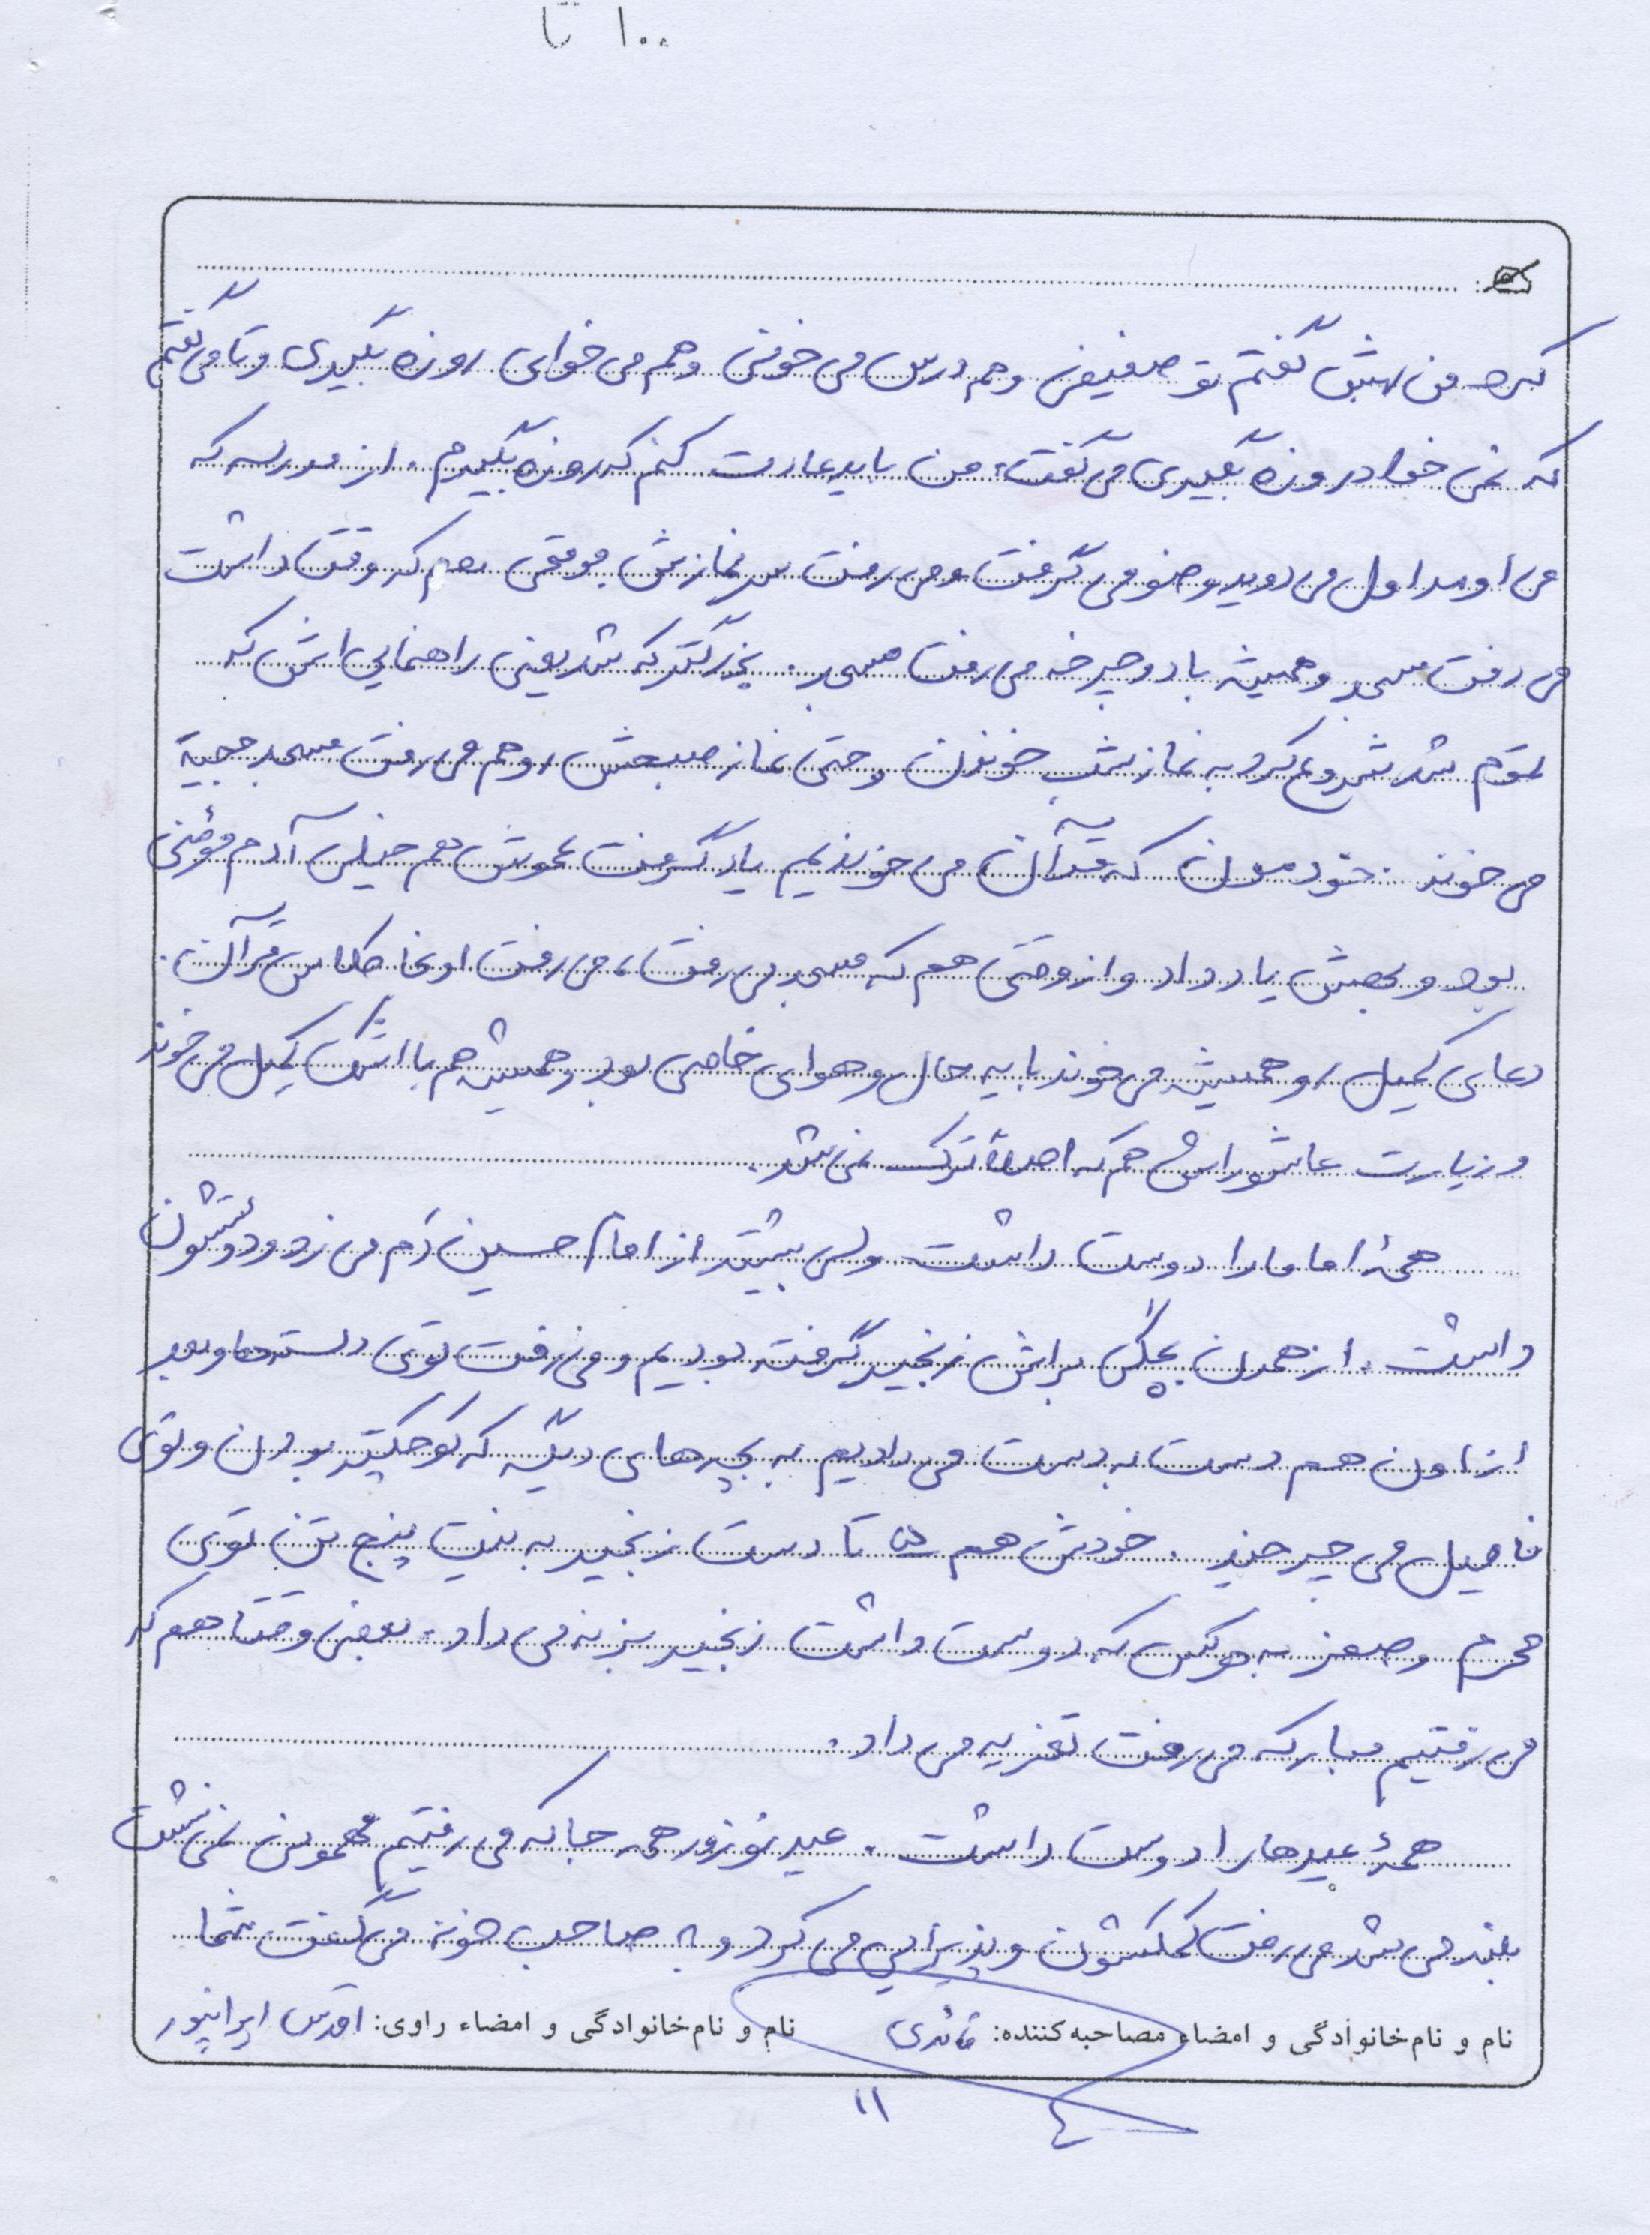 ۱۰۰ تا
کرد من بهش گفتم تو ضعیفی وهم درس می خونی وهم می خوای روزه بگیری وتا می گفتم
که نمی خواد روزه بگیری می گفت: من باید عادت کنم که روزه بگیرم. از مدرسه که
می اومد اول می دوید وضو می گرفت و می رفت سر نمازش موقعی هم که وقت داشت
می رفت مسجد وهمیشه با دوچرخه می رفت مسجد. بزرگتر که شد یعنی راهنمایی اش که
تموم شد شروع کرد به نماز شب خوندن وحتی نماز صبحش رو هم می رفت مسجد حجیة
می خوند. خودمون که قرآن می خوندیم یاد گرفت عموش هم خیلی آدم مؤمنی
بود و بهش یاد داد و از وقتی هم که مسجد می رفت، می رفت اونجا کلاس قرآن.
دعای کمیل رو همیشه می خوند با یه حال وهوای خاصی بود وهمیشه هم با اشک کمیل می خوند
وزیارت عاشوراش هم که اصلاً ترک نمی شد.
همۀ اماما را دوست داشت ولی بیشتر از امام حسین دم می زد و دوستشون
داشت. از همون بچگی براش زنجیر گرفته بودیم و می رفت توی دسته ها و بعد
از اون هم دست به دست می دادیم به بچه های دیگه که کوچکتر بودن و توی
فامیل می چرخید. خودش هم ۵ تا دست زنجیر به نیت پنج تن توی
محرم وصفر به هرکس که دوست داشت زنجیر بزنه می داد. بعضی وقتا هم که
می رفتیم مبارکه می رفت تعزیه می داد.
همۀ عیدها را دوست داشت. عید نوروز همه جا که می رفتیم مهمونی نمی نشست
بلند می شد می رفت کمکشون و پذیرایی می کرد و به صاحب خونه می گفت شما
نام و نام خانوادگی و امضاء مصاحبه کننده: قائدی نام و نام خانوادگی و امضاء راوی: اقدس ایرانپور
۱۱